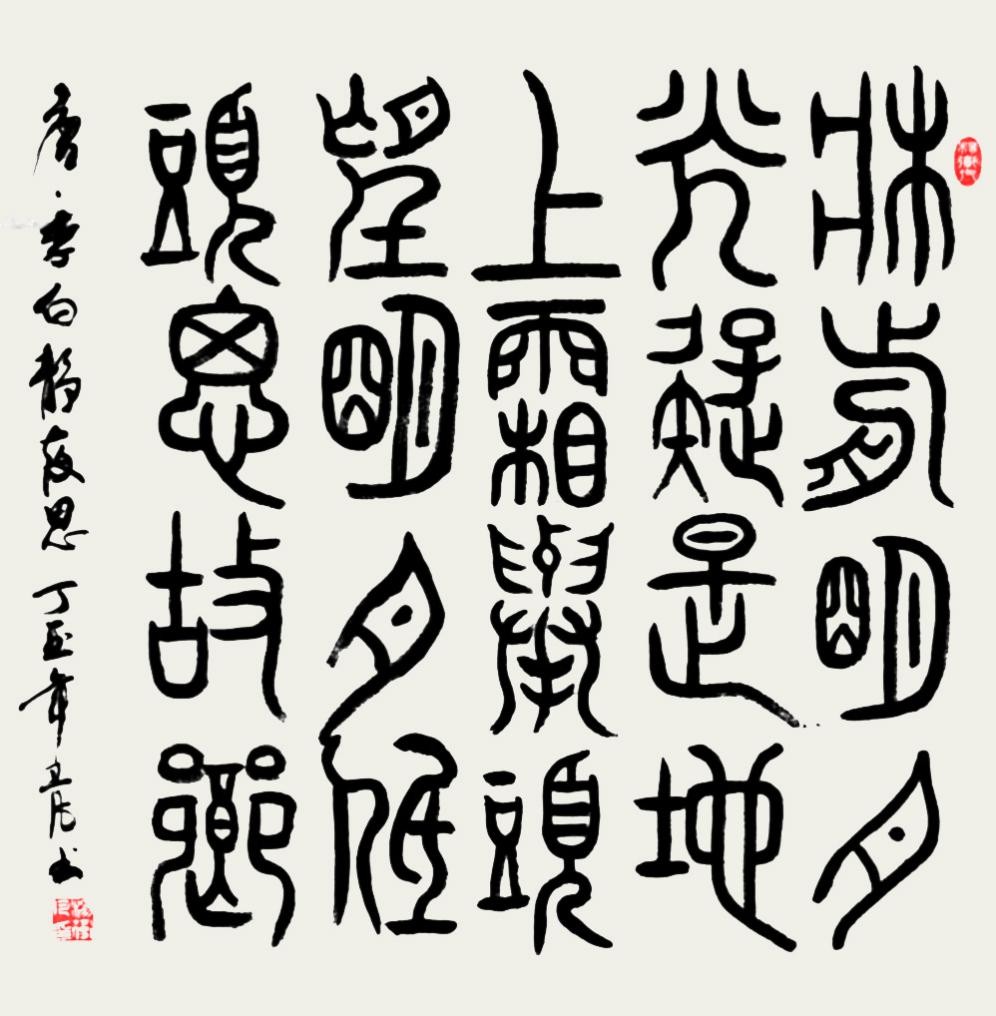 牀前明月
光疑是地
上霜舉頭
望明月低
頭思故鄉
唐·李白靜夜思 丁亥年 書